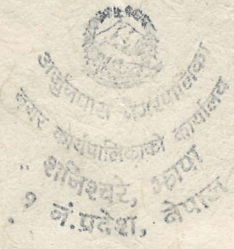 अर्जुनधारा नगरपालिका
नगर कार्यपालिकाको कार्यालय
शनिश्चरे, झापा
१ नं.प्रदेश, नेपाल